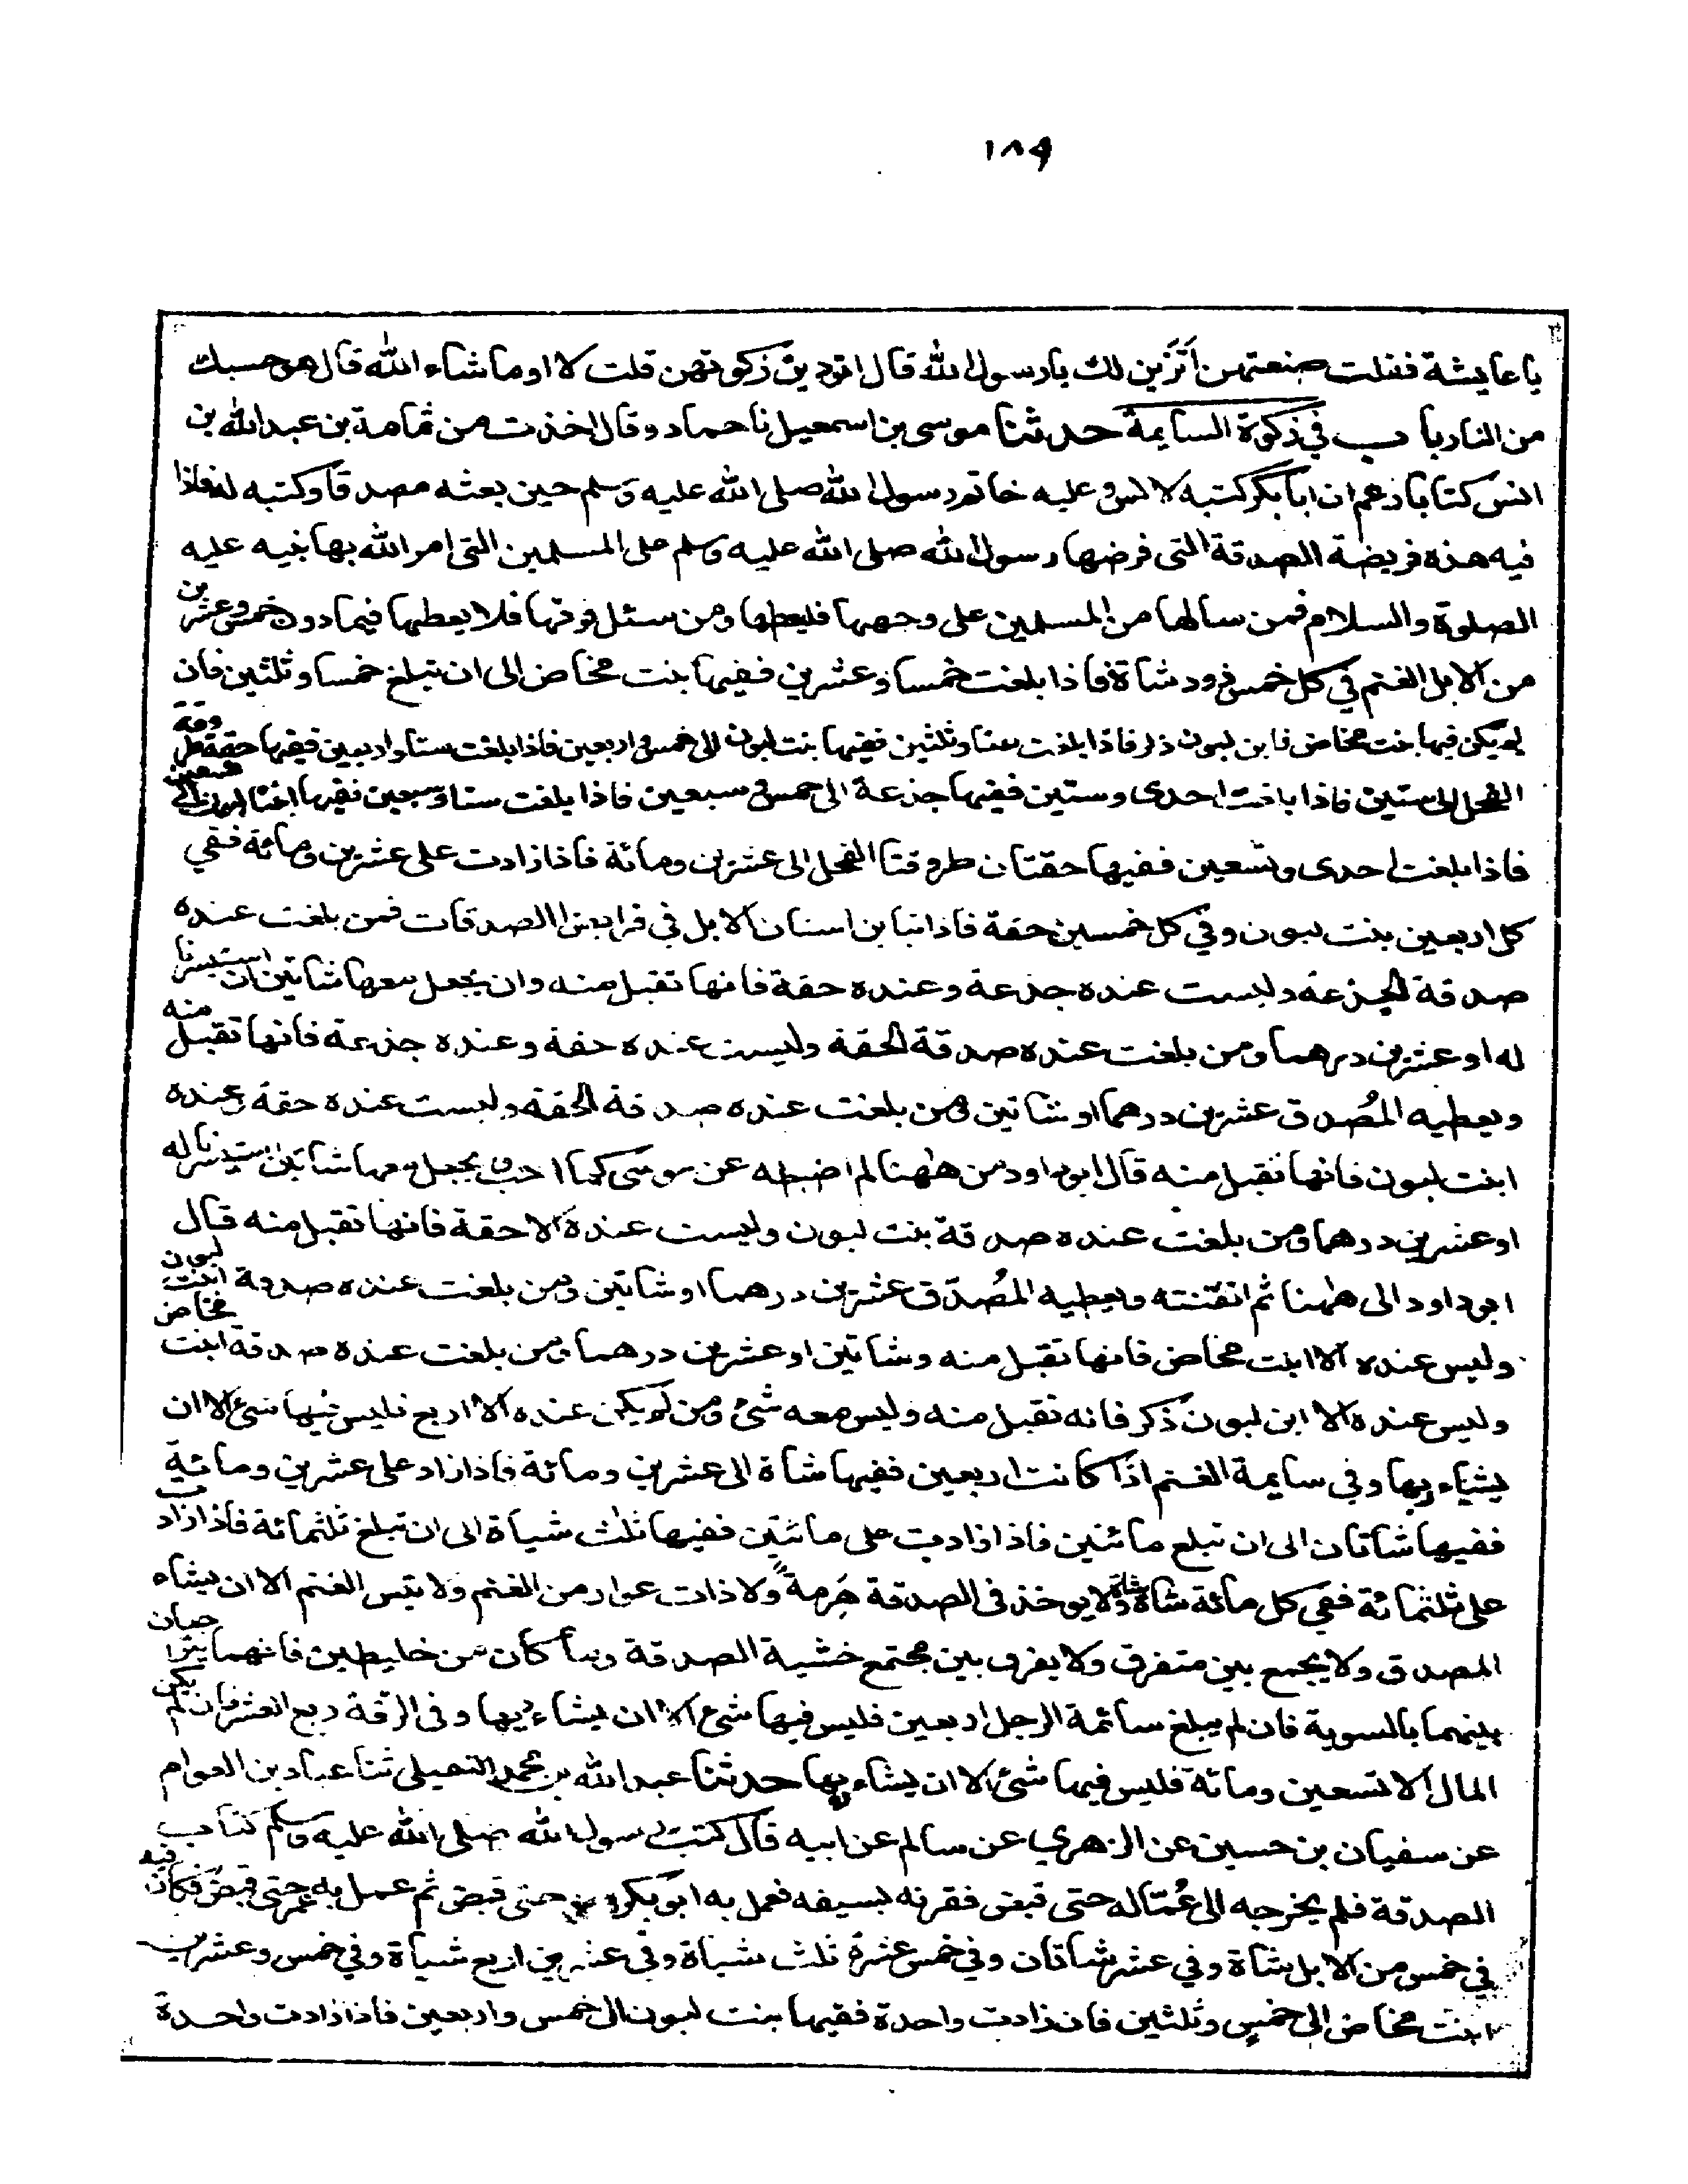 ١٨٩
يا عايشة فقلت صنعتهن أتزين لك يا رسول الله قال اتودين زكوتهن قلت لا او ما شاء الله قال هو حسبك
من النار باب في زكوة السايمة حدثنا موسى بن اسمعيل نا حماد وقال اخذت من ثمامة بن عبد الله بن
انس كتابا زعم ان ابا بكر كتبه لانس وعليه خاتم رسول الله صلى الله عليه وسلم حين بعثه مصدقا وكتبه له فاذا
فيه هذه فريضة الصدقة التى فرضها رسول الله صلى الله عليه وسلم على المسلمين التى امر الله بها نبيه عليه
الصلوة والسلام فمن سالها من المسلمين على وجهها فليعطها ومن سئل فوقها فلا يعطها فيما دون خمس وعشرين
من الابل الغنم في كل خمس ذود شاة فاذا بلغت خمسا وعشرين ففيها بنت مخاض الى ان تبلغ خمسا وثلثين فان
لم يكن فيها بنت مخاض فابن لبون ذكر فاذا بلغت ستا وثلثين ففيها بنت لبون الى خمس و اربعين فاذا بلغت ستا واربعين ففيها حقة طروقة
الفحل الى ستين فاذا بلغت احدى وستين ففيها جذعة الى خمس و سبعين فاذا بلغت ستا وسبعين ففيها ابنتا لبون الى تسعين
فاذا بلغت احدى وتسعين ففيها حقتان طروقتا الفحل الى عشرين ومائة فاذا زادت على عشرين ومائة ففي
كل اربعين بنت لبون وفي كل خمسين حقة فاذا تباين اسنان الابل في فرايض الصدقات فمن بلغت عنده
صدقة الجذعة وليست عنده جذعة وعنده حقة فانها تقبل منه وان يجعل معها شاتين ان استيسرتا
له او عشرين درهما ومن بلغت عنده صدقة الحقة وليست عنده حقة وعنده جذعة فانها تقبل منه
ويعطيه المُصدق عشرين درهما او شاتين ومن بلغت عنده صدقة الحقة وليست عنده حقة وعنده
ابنت لبون فانها تقبل منه قال ابو داود من ههنا لم اضبطه عن موسى كما احب يجعل معها شاتين ان استيسرتا له
او عشرين درهما ومن بلغت عنده صدقة بنت لبون وليست عنده الا حقة فانها تقبل منه قال
ابو داود الى ههنا ثم اتقنته ويعطيه المُصدّق عشرين درهما او شاتين ومن بلغت عنده صدقة ابنت لبون
وليس عنده الا ابنت مخاض فانها تقبل منه وشاتين او عشرين درهما ومن بلغت عنده صدقة ابنت مخاض
وليس عنده الا ابن لبون ذكر فانه تقبل منه وليس معه شئ ومن لم يكن عنده الا اربع فليس فيها شئ الا ان
يشاء ربها وفي سايمة الغنم اذا كانت اربعين ففيها شاة الى عشرين ومائة فاذا زاد على عشرين ومائية
ففيها شاتان الى ان تبلغ مائتين فاذا زادت على مائتين ففيها ثلث شياة الى ان تبلغ ثلثمائة فاذا زادت
على ثلثمائة ففي كل مائة شاة شاة ولا يوخذ فى الصدقة هَرِمة ولا ذات عوار من الغنم ولا تيس الغنم الا ان يشاء
المصدق ولا يجمع بين متفرق ولا يفرق بين مجتمع خشية الصدقة وما كان من خليطين فانهما يتراجعان
بينهما بالسوية فان لم يبلغ سائمة الرجل اربعين فليس فيها شئ الا ان يشاء ربها وفى الرقة ربع العشر فان لم يكن
المال الا تسعين ومائة فليس فيها شئ الا ان يشاء ربها حدثنا عبد الله بن محمد النفيلى ثنا عباد بن العوام
عن سفيان بن حسين عن الزهري عن سالم عن ابيه قال كتب رسول الله صلى الله عليه وسلم كتاب
الصدقة فلم يخرجه الى عُمّاله حتى قبض فقرنه بسيفه فعمل به ابو بكر حتى قبض ثم عمل به عمر حتى قبض فكان فيه
في خمس من الابل شاة وفي عشر شاتان وفي خمس عشرة ثلث شياة وفي عشرين اربع شياة وفي خمس وعشرين
ابنت مخاض الى خمس وثلثين فان زادت واحدة ففيها بنت لبون الى خمس واربعين فاذا زادت واحدة